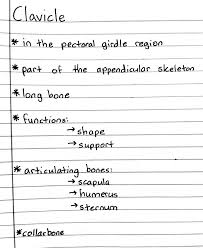 Clavicle
* in the pectoral girdle region
* part of the appendicular skeleton
* long bone
* functions:
→ shape
→ support
* articulating bones:
→ scapula
→ humerus
→ sternum
* collarbone